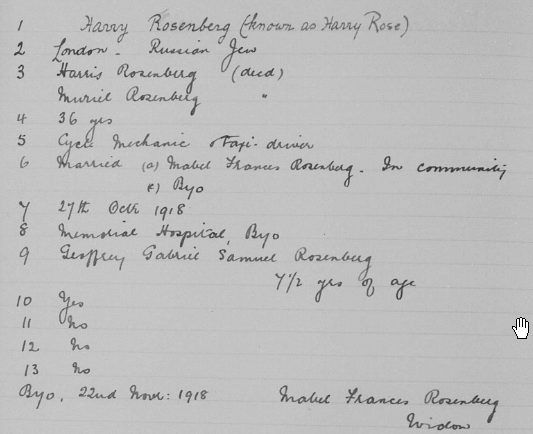 1 Harry Rosenberg (known as Harry Rose)
2 London - Russian Jew
3 Harris Rosenberg (decd)
Muriel Rosenberg "
4 36 yrs
5 Cycle Mechanic & Taxi-driver
6 Married (a) Mabel Frances Rosenberg. In community
(c) Byo
7 27th Octr 1918
8 Memorial Hospital, Byo
9 Geoffrey Gabriel Samuel Rosenberg
7 1/2 yrs of age
10 Yes
11 No
12 No
13 No
Byo, 22nd Novr: 1918 Mabel Frances Rosenberg
Widow